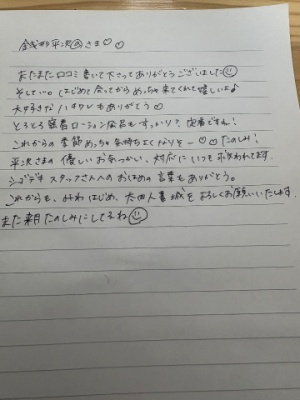 銭形平次㊇さま♡♡
またまた口コミ書いて下さってありがとうございました☺
そして…。はじめて会ってからめっちゃ来てくれて嬉しいよ♪
大好きな ありがとう♡
とろとろ密着ローション風呂もすっかり?定番ですね!
これからの季節めっちゃ気持ちよくなりそ〜♡♡たのしみ!
平次さまの優しいお気づかい、対応にいつも救われてます
スタッフさんへのおほめの言葉もありがとう。
これからも、みわはじめ、太田人妻城をよろしくお願いいたします
また来月たのしみにしてるね☺